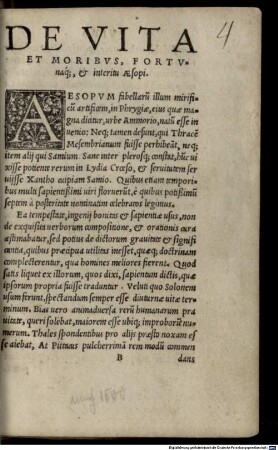 4
DE VITA
ET MORIBVS, FORTV
naq́;, & interitu Æsopi.
AESOPVM fabellarũ illum mirifi-
cũ artificem, in Phrygiæ, eius quæ ma-
gna dicitur, urbe Ammorio, natũ esse in
uenio: Neq; tamen desunt, qui Thracẽ
Mesembrianum fuisse perhibeãt, neq;
item alij qui Samium. Sane inter plerosq; constat, hũc ui
xisse potientè rerum in Lydia Crœso, & seruitutem ser-
uisse Xantho cuipiam Samio. Quibus etiam temporibus
multi sapientißimi uiri floruerũt, è quibus potißimũ
septem à posteritate nominatim celebratos legimus.
Ea tempestate, ingenij bonitas & sapientiæ usus, non
de exquisita uerborum compositione, & orationis cura
æstimabatur, sed potius de dictorum grauitate & signifi
cantia, quibus præcipua utilitas inesset, quæq; doctrinam
complecterentur, qua homines meliores fierent. Quod
satis liquet ex illorum, quos dixi, sapientum dictis, quæ
ipsorum propria fuisse traduntur. Veluti quo Solonem
usum ferunt, spectandum semper esse diuturnæ uitæ ter-
minum. Bias uero animaduersa rerũ humanarum pra
uitate, queri solebat, maiorem esse ubiq; improborũ nu-
merum. Thales spondentibus pro alijs præsto noxam es
se aiebat, At Pittacus pulcherrimã rem modũ commen
B
dans